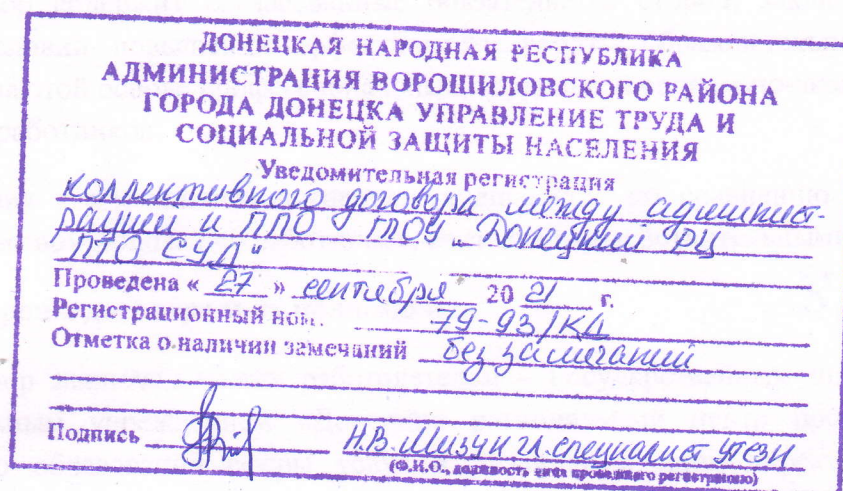 ДОНЕЦКАЯ НАРОДНАЯ РЕСПУБЛИКА
АДМИНИСТРАЦИЯ ВОРОШИЛОВСКОГО РАЙОНА
ГОРОДА ДОНЕЦКА УПРАВЛЕНИЕ ТРУДА И
СОЦИАЛЬНОЙ ЗАЩИТЫ НАСЕЛЕНИЯ
Уведомительная регистрация
коллективного договора между админист-
рацией и ППО ГПОУ „Донецкий РЦ
ПТО СУД"
Проведена « 27 » сентября 20 21 г.
Регистрационный ном. 79-93/КД
Отметка о наличии замечаний без замечаний
Подпись Н.В. Мизун гл. специалист УТСЗН
(Ф.И.О., должность лица проводящего регистрацию)